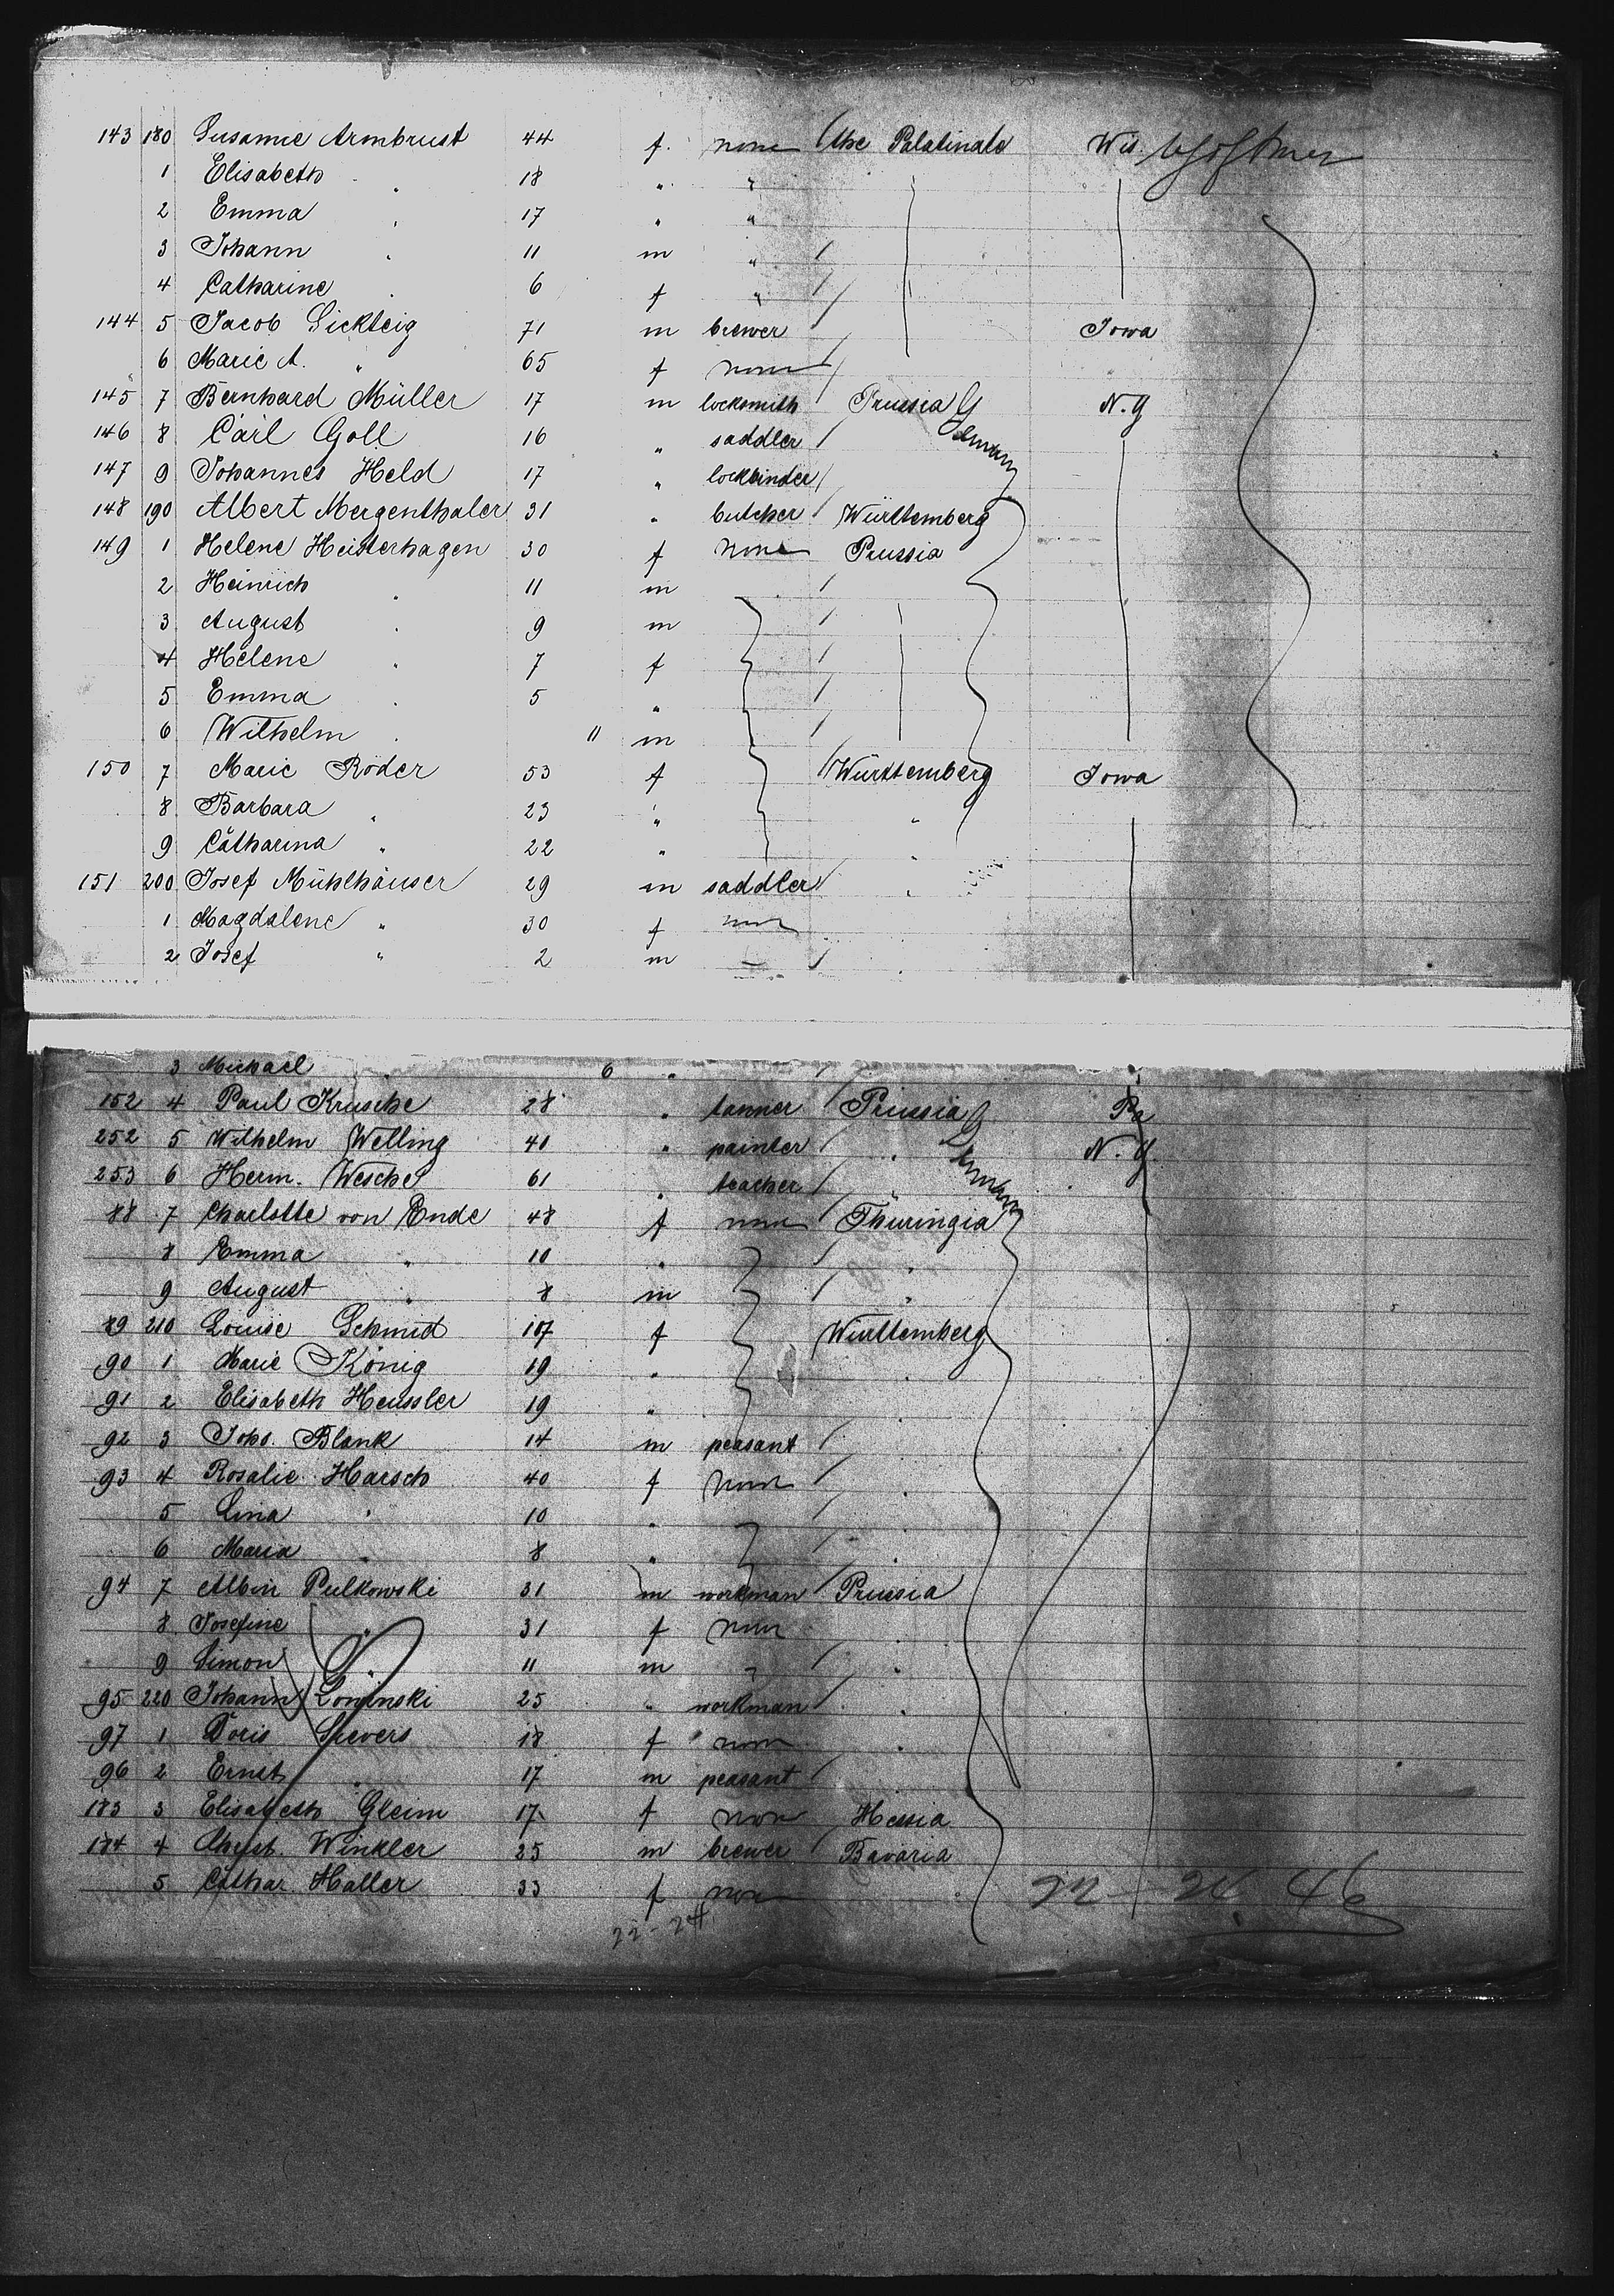 143 180 Susanne Armbrust 44 f. none the Palatinate Wis.
1 Elisabeth " 18 " "
2 Emma " 17 " "
3 Johann " 11 m "
4 Catharine " 6 f "
144 5 Jacob Sickteig 71 m brewer Iowa
6 Marie A. " 65 f none
145 7 Bernhard Müller 17 m locksmith Prussia N.Y
146 8 Carl Goll 16 " saddler Germany
147 9 Johannes Held 17 "
148 190 Albert Mergenthaler 31 " butcher Württemberg
149 1 Helene Heisterhagen 30 f none Prussia
2 Heinrich " 11 m
3 August " 9 m
4 Helene " 7 f
5 Emma " 5 "
6 Wilhelm " 11 m
150 7 Marie Röder 53 f Württemberg Iowa
8 Barbara " 23 " "
9 Catharina " 22 " "
151 200 Josef Mühlhäuser 29 m saddler "
1 Magdalene " 30 f none
2 Josef " 2 m "
3 Michael " 6 "
152 4 Paul Krusche 28 " tanner Prussia Pa
252 5 Wilhelm Welling 40 " painter " N.Y.
253 6 Herm. Wesche 61 " teacher " Germany
88 7 Charlotte von Ende 48 f none Thuringia
8 Emma " 10 " "
9 August " 8 m "
89 210 Louise Schmid 107 f Württemberg
90 1 Marie König 19 " "
91 2 Elisabeth Heussler 19 " "
92 3 Johs. Blank 14 m peasant "
93 4 Rosalie Harsch 40 f none "
5 Lina " 10 "
6 Maria " 8 " "
94 7 Albin Pulkowski 31 m workman Prussia
8 Josefine " 31 f none "
9 Simon " 11 m " "
95 220 Johann Lowinski 25 " workman "
97 1 Doris Sievers 18 f none "
96 2 Ernst " 17 m peasant
183 3 Elisabeth Gleim 17 f none Hessia
184 4 Christ. Winkler 25 m brewer Bavaria
5 Cathar. Haller 33 f none " 22 - 24 46
22 - 24